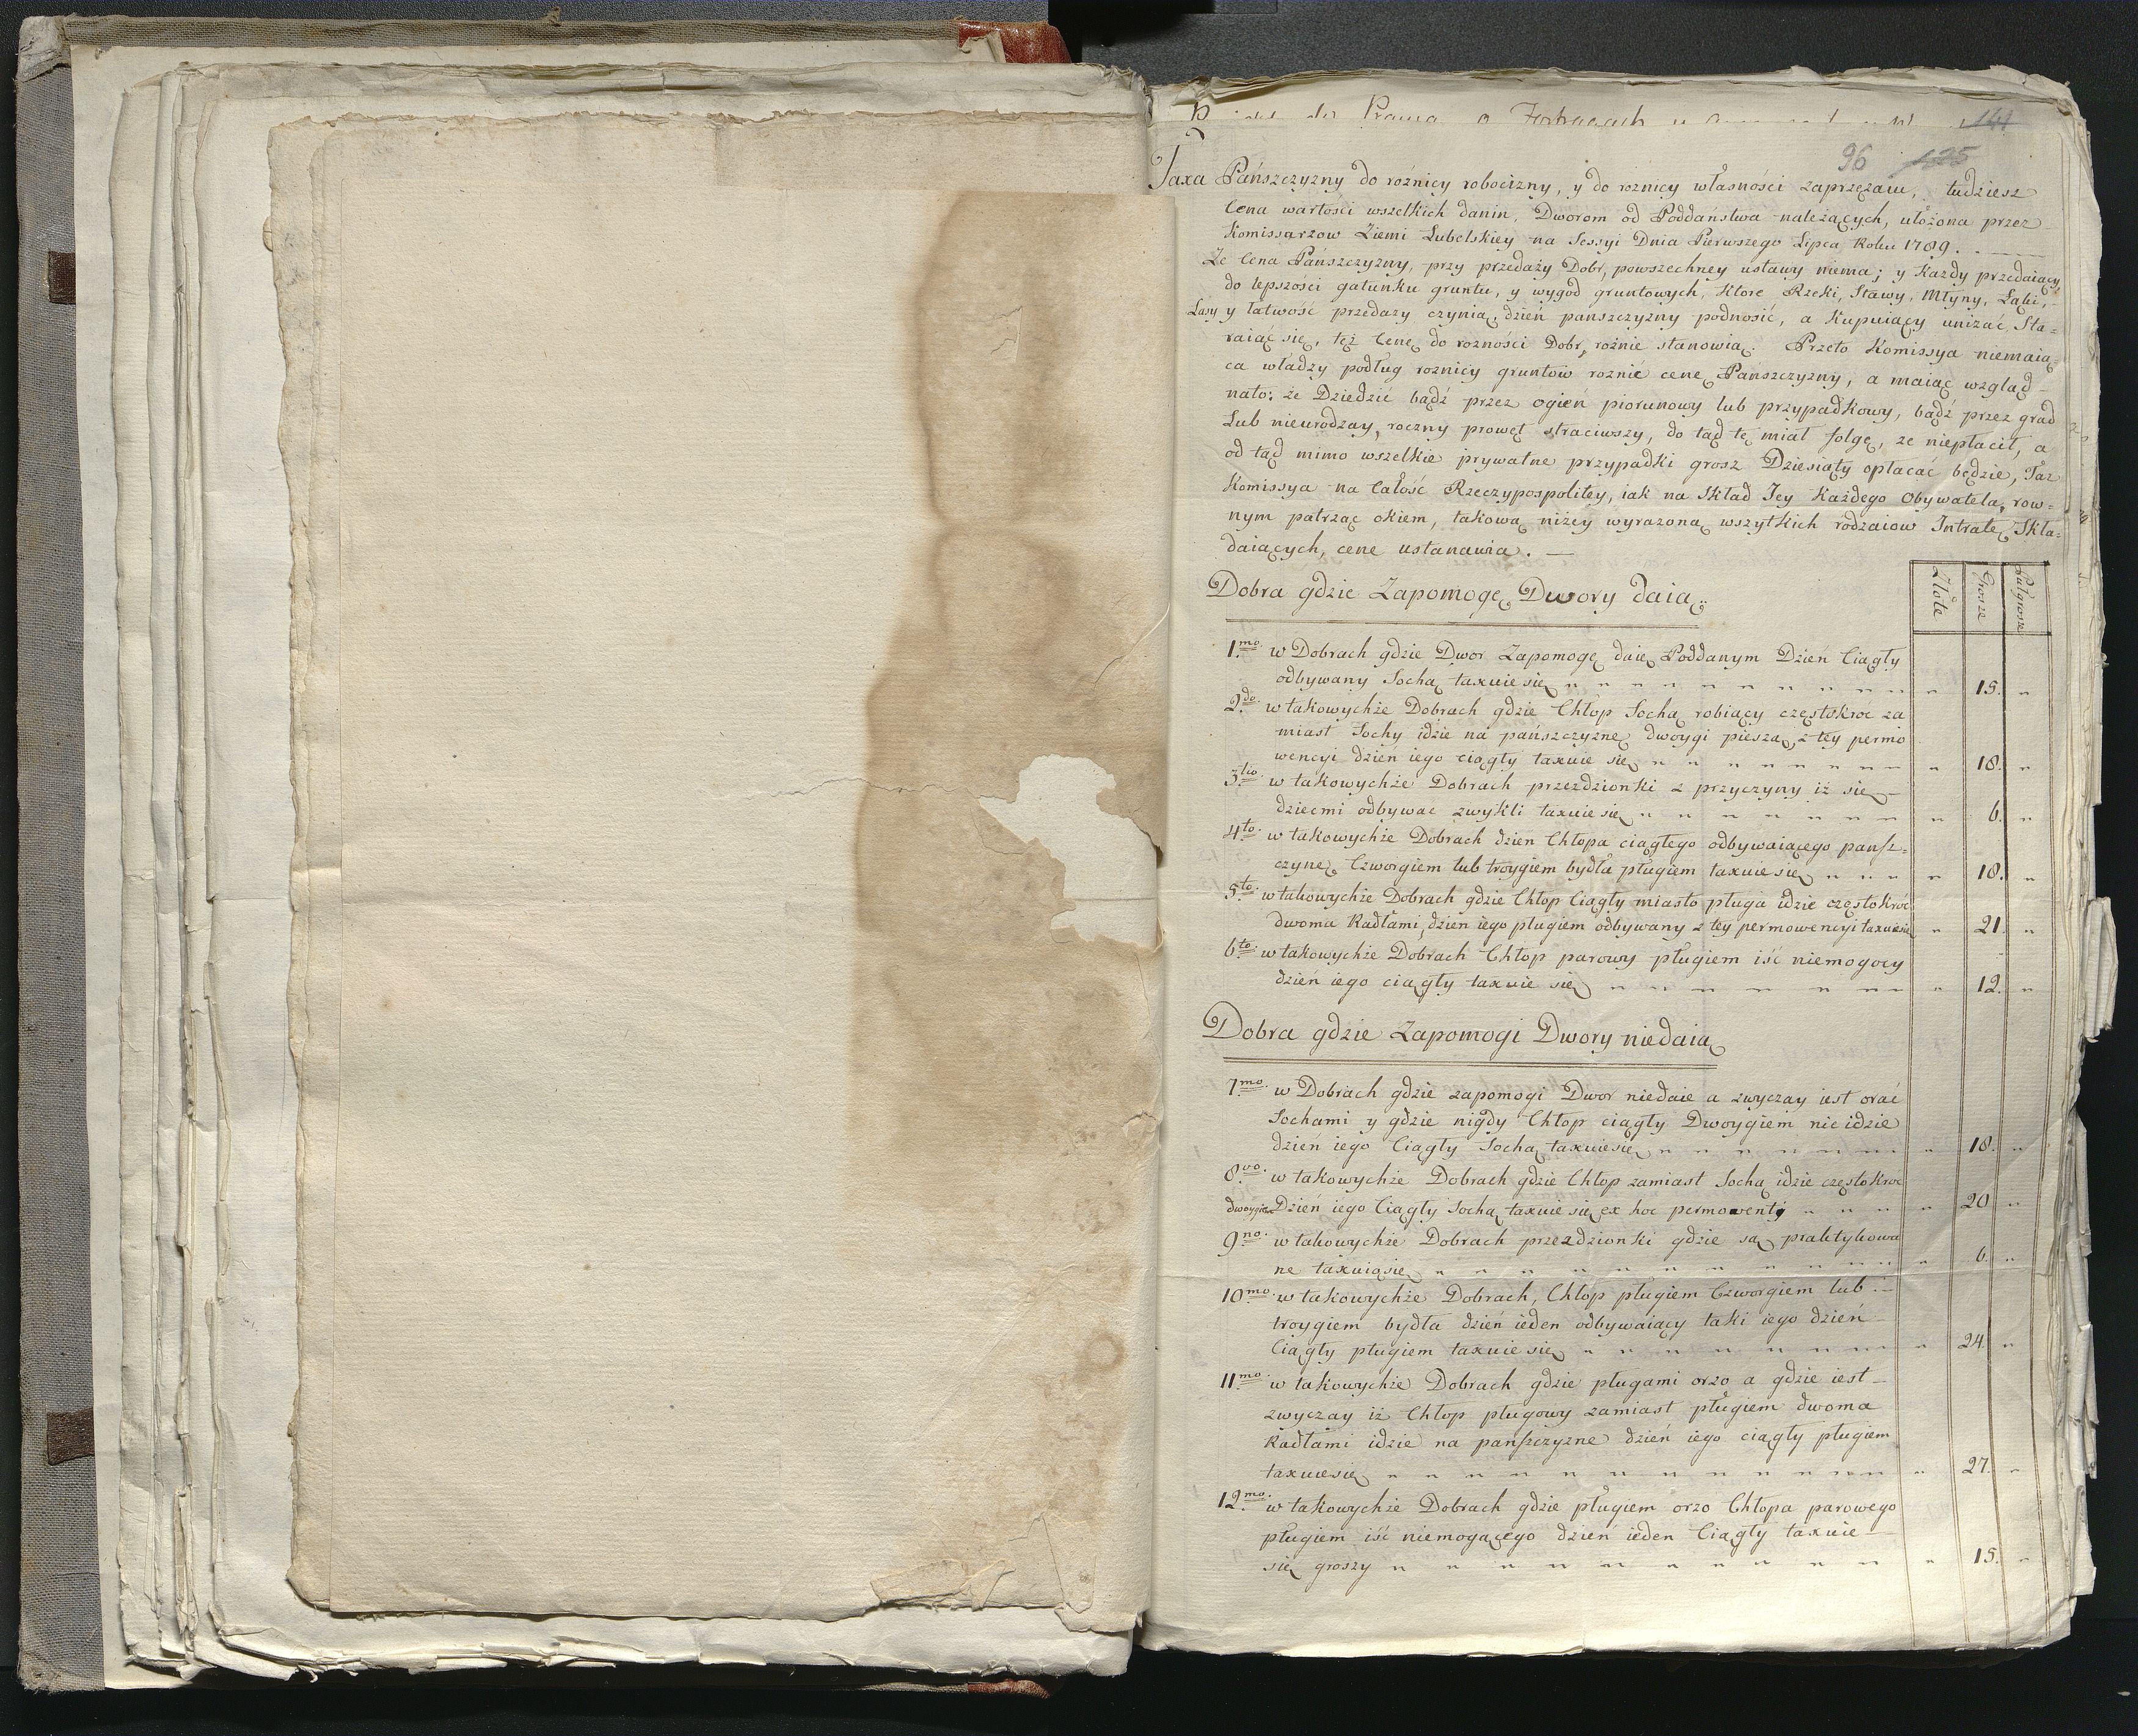 do Prawa o
141
96 125
Taxa Pańszczyzny do roźnicy robocizny, y do roznicy własności zaprzęzaiu, tudziesz
Cena wartości wszelkich danin, Dworom od Poddaństwa należących, ułożona przez
Komissarzow Ziemi Lubelskiey na Sessyi Dnia Pierwszego Lipca Roku 1789.
Ze Cena Pańszczyzny, przy przedaży Dobr, powszechney ustawy niema; y Każdy przedaiący
do lepszości gatunku gruntu, y wygod gruntowych, Ktore Rzeki, Stawy, Młyny, Łąki,
Lasy y łatwość przedaży czynią, dzień pańszczyzny podnosić, a Kupuiący unizać, Sta=
raiąc się, też Cenę do rozności Dobr, rożnie stanowią. Przeto Komissya niemaią=
ca władzy podług roznicy gruntow roznić cenę Panszczyzny, a maiąc wzgląd
nato: że Dziedzić bądź przez ogień piorunowy lub przypadkowy, bądź przez grad
Lub nieurodzay, roczny prowęt straciwszy, do tąd tę miał folgę, ze niepłacił, a
od tąd mimo wszelkie prywatne przypadki grosz Dziesiąty opłacać będzie, Taż
Komissya na Całość Rzeczypospolitey, iak na Skład Jey Każdego Obywatela, row=
nym patrząc okiem, takową niżey wyrazoną wszytkich rodzaiow Intratę Skła=
daiących, cene ustanawia.
Dobra gdzie Zapomogę Dwory daią.
Złote Grosze Pułgrosze
1mo. w Dobrach gdzie Dwor Zapomogę daie Poddanym Dzień Ciągły
odbywany Sochą taxuie się " 15. "
2do. w takowychże Dobrach gdzie Chłop Sochą robiący częstokroc za
miast Sochy idzie na pańszczyznę dwoygi pieszą, z tey permo
wencyi dzień iego ciągły taxuie się " 18. "
3tio. w takowychże Dobrach przezdzionki z przyczyny iż się
dziecmi odbywac zwykli taxuie się " 6. "
4to. w takowychże Dobrach dzien Chłopa ciągłego odbywaiącego pansz=
czynę Czworgiem lub troygiem bydła pługiem taxuie się " 18. "
5to. w takowychże Dobrach gdzie Chłop Ciągły miasto pługa idzie częstokroć
dwoma Radłami, dzien iego pługiem odbywany z tey permowencyi taxuie się " 21 "
6to. w takowychże Dobrach Chłop parowy pługiem iść niemogocy
dzień iego ciągły taxuie się " 12. "
Dobra gdzie Zapomogi Dwory niedaią
7mo. w Dobrach gdzie zapomogi Dwor niedaie a zwyczay iest orać
Sochami y gdzie nigdy Chłop ciągły Dwoygiem nie idzie
dzień iego Ciągły Sochą taxuie się " 18. "
8vo. w takowychże Dobrach gdzie Chłop zamiast Sochą idzie częstokroc
dwoygiem Dzień iego Ciągły Sochą taxuie się ex hoc permowenty " 20 "
9no. w takowychże Dobrach przezdzionki gdzie są praktykowa
ne taxuią się " 6. "
10mo. w takowychże Dobrach, Chłop pługiem Czworgiem lub
troygiem bydła dzień ieden odbywaiący taki iego dzień
Ciągły pługiem taxuie się " 24. "
11mo. w takowychże Dobrach gdzie pługami orzo a gdzie iest
zwyczay iż Chłop pługowy zamiast pługiem dwoma
Radłami idzie na panszczyzne dzień iego ciągły pługiem
taxuie się " 27. "
12mo. w takowychże Dobrach gdzie pługiem orzo Chłopa parowego
pługiem iść niemogącego dzień ieden Ciągły taxuie
się groszy " 15. "